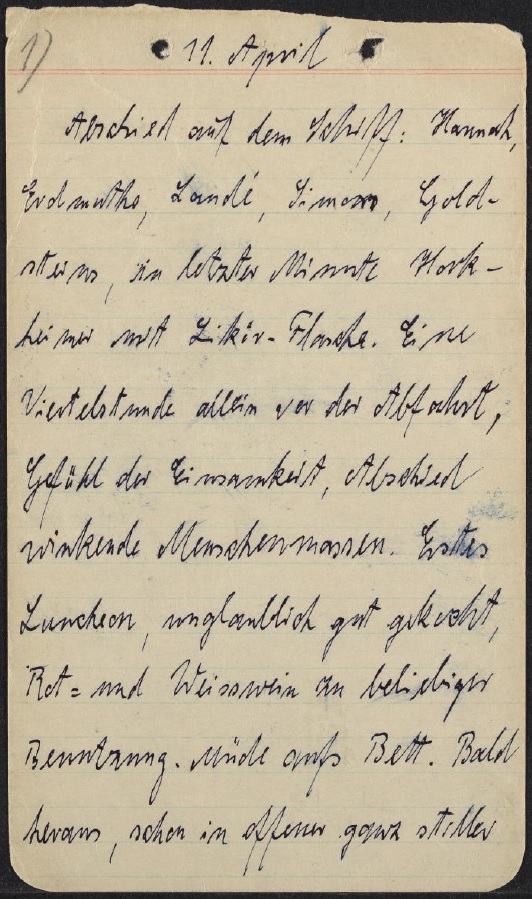 1)
11. April
Abschied auf dem Schiff: Hannah,
Erdmuths, Landé, Simons, Gold-
steins, in letzter Minute Hork-
heimer mit Likör-Flasche. Eine
Viertelstunde allein vor der Abfahrt,
Gefühl der Einsamkeit, Abschied
winkende Menschenmassen. Erstes
Luncheon, unglaublich gut gekocht,
Rot= und Weisswein zu beliebiger
Benutzung. Müde aufs Bett. Bald
heraus, schon in offener ganz stiller